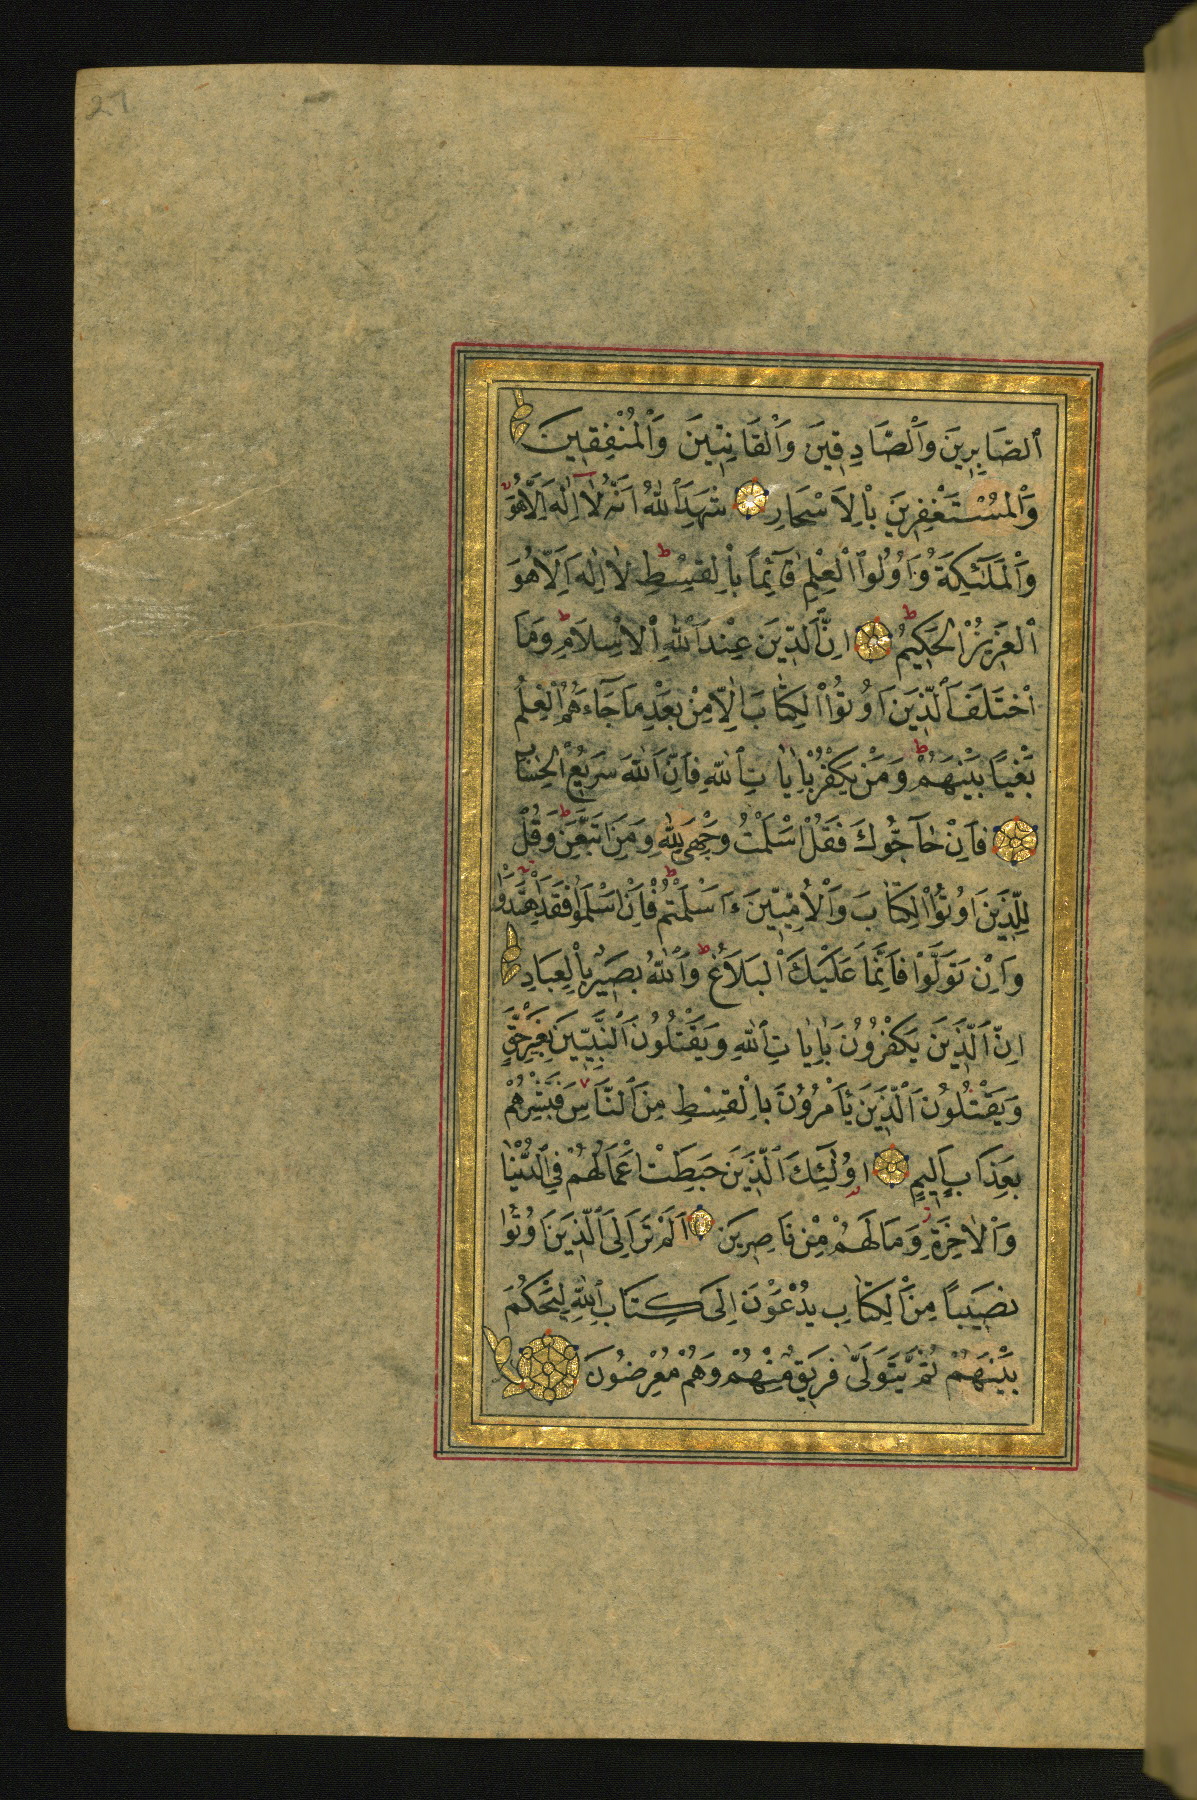 27
اَلصَّابِرِينَ وَالصَّادِقِينَ وَالْقَانِتِينَ وَالْمُنْفِقِينَ
وَالْمُسْتَغْفِرِينَ بِالْاَسْحَارِ شَهِدَ اللّٰهُ اَنَّهُ لَا اِلٰهَ اِلَّا هُوَ
وَالْمَلٰئِكَةُ وَاُولُوا الْعِلْمِ قَائِمًا بِالْقِسْطِ ط لَا اِلٰهَ اِلَّا هُوَ
الْعَزِيزُ الْحَكِيمُ ط اِنَّ الدِّينَ عِنْدَ اللّٰهِ الْاِسْلَامُ ط وَمَا
اخْتَلَفَ الَّذِينَ اُوتُوا الْكِتَابَ اِلَّا مِنْ بَعْدِ مَا جَاءَهُمُ الْعِلْمُ
بَغْيًا بَيْنَهُمْ ط وَمَنْ يَكْفُرْ بِاٰيَاتِ اللّٰهِ فَاِنَّ اللّٰهَ سَرِيعُ الْحِسَابِ
فَاِنْ حَاجُّوكَ فَقُلْ اَسْلَمْتُ وَجْهِيَ لِلّٰهِ وَمَنِ اتَّبَعَنِ ط وَقُلْ
لِلَّذِينَ اُوتُوا الْكِتَابَ وَالْاُمِّيِّينَ ءَاَسْلَمْتُمْ ط فَاِنْ اَسْلَمُوا فَقَدِ اهْتَدَوْا
وَاِنْ تَوَلَّوْا فَاِنَّمَا عَلَيْكَ الْبَلَاغُ ط وَاللّٰهُ بَصِيرٌ بِالْعِبَادِ
اِنَّ الَّذِينَ يَكْفُرُونَ بِاٰيَاتِ اللّٰهِ وَيَقْتُلُونَ النَّبِيِّينَ بِغَيْرِ حَقٍّ
وَيَقْتُلُونَ الَّذِينَ يَأْمُرُونَ بِالْقِسْطِ مِنَ النَّاسِ فَبَشِّرْهُمْ
بِعَذَابٍ اَلِيمٍ اُولٰئِكَ الَّذِينَ حَبِطَتْ اَعْمَالُهُمْ فِي الدُّنْيَا
وَالْاٰخِرَةِ ز وَمَا لَهُمْ مِنْ نَاصِرِينَ اَلَمْ تَرَ اِلَى الَّذِينَ اُوتُوا
نَصِيبًا مِنَ الْكِتَابِ يُدْعَوْنَ اِلٰى كِتَابِ اللّٰهِ لِيَحْكُمَ
بَيْنَهُمْ ثُمَّ يَتَوَلّٰى فَرِيقٌ مِنْهُمْ وَهُمْ مُعْرِضُونَ